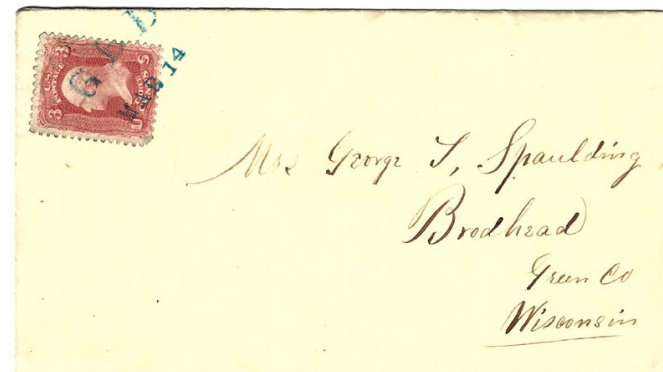 MAR 14
Mrs George S, Spaulding,
Brodhead
Green Co
Wisconsin